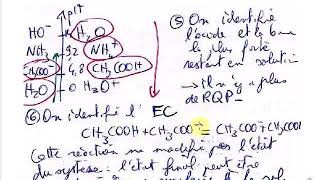 pH
HO⁻ H₂O
NH₃ 9,2 NH₄⁺
CH₃COO⁻ 4,8 CH₃COOH
H₂O 0 H₃O⁺
⑤ On identifie
l'acide et la base
la plus forte
restant en solution
→ Il n'y a plus
de RQP
⑥ On identifie l' EC
CH₃COOH + CH₃COO⁻ = CH₃COO⁻ + CH₃COOH
Cette réaction ne modifie pas l'état
du système : l'état final peut être